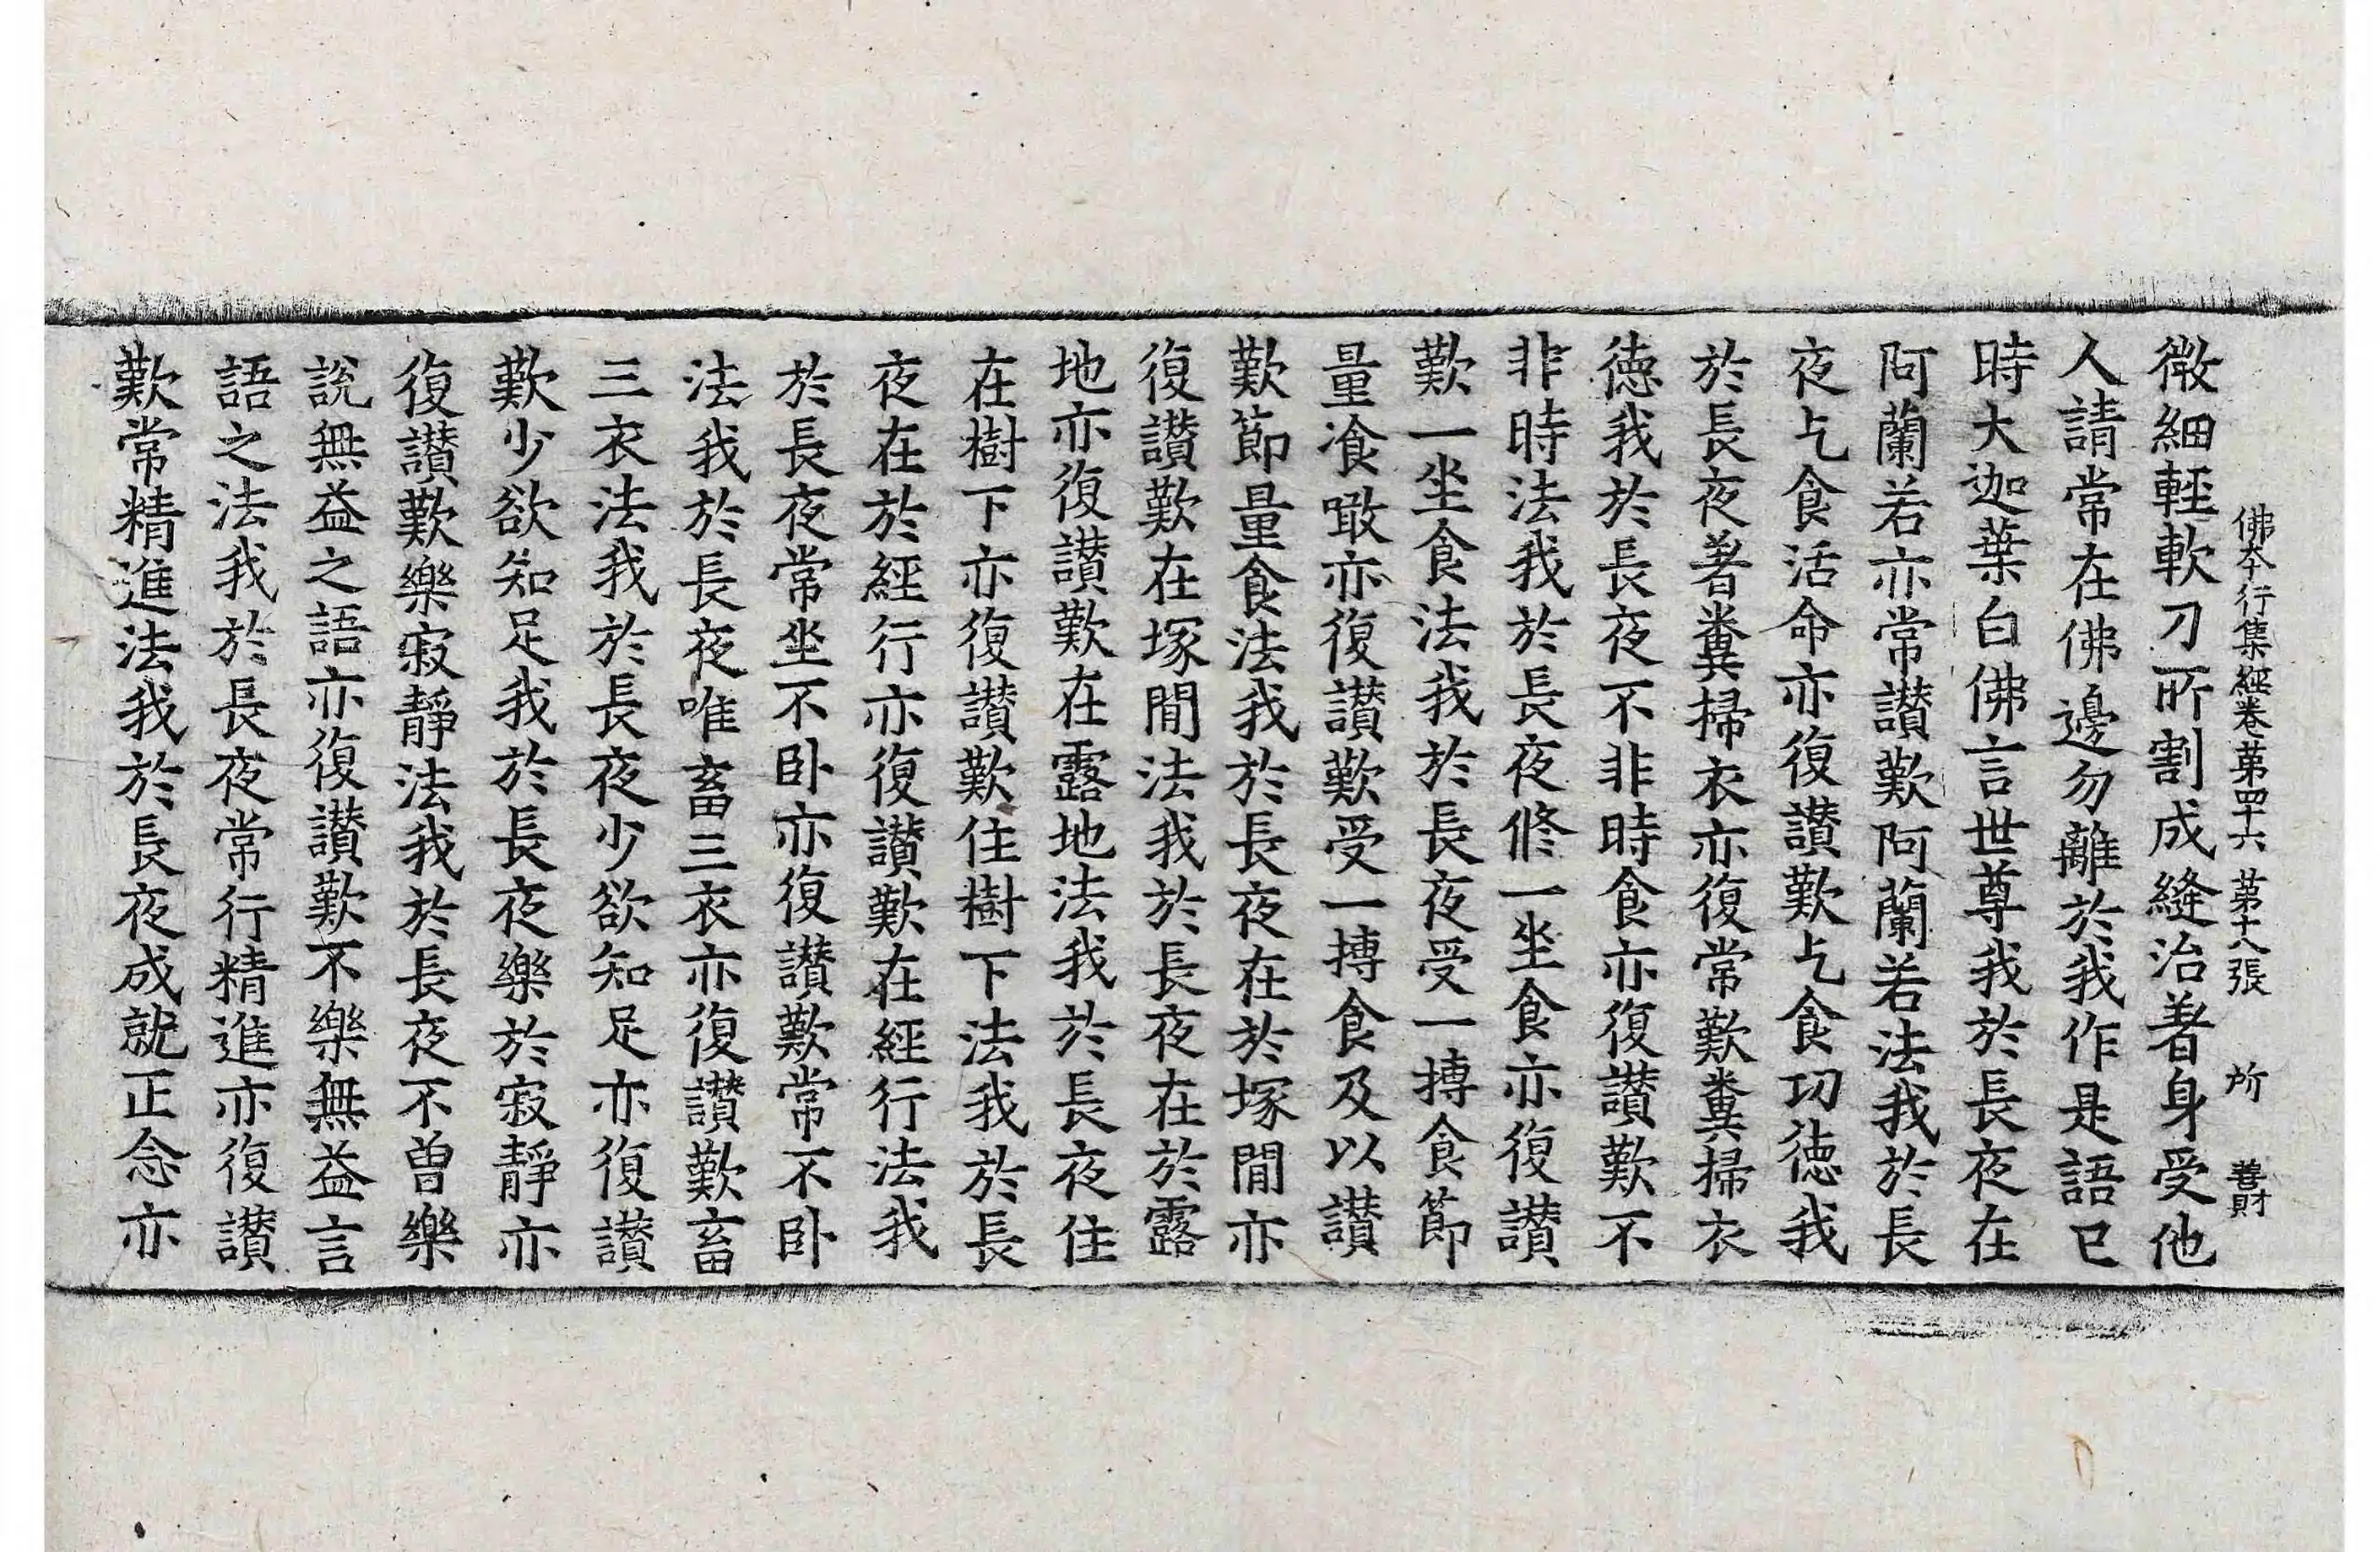 佛本行集經卷第四十六 第十八張 所 善財
微細輕軟刀所割成縫治著身受他
人請常在佛邊勿離於我作是語已
時大迦葉白佛言世尊我於長夜在
阿蘭若亦常讃歎阿蘭若法我於長
夜乞食活命亦復讃歎乞食功德我
於長夜著糞掃衣亦復常歎糞掃衣
德我於長夜不非時食亦復讃歎不
非時法我於長夜修一坐食亦復讃
歎一坐食法我於長夜受一摶食節
量飡噉亦復讃歎受一摶食及以讃
歎節量食法我於長夜在於塚閒亦
復讃歎在塚閒法我於長夜在於露
地亦復讃歎在露地法我於長夜住
在樹下亦復讃歎住樹下法我於長
夜在於經行亦復讃歎在經行法我
於長夜常坐不卧亦復讃歎常不卧
法我於長夜唯畜三衣亦復讃歎畜
三衣法我於長夜少欲知足亦復讃
歎少欲知足我於長夜樂於寂靜亦
復讃歎樂寂靜法我於長夜不曾樂
說無益之語亦復讃歎不樂無益言
語之法我於長夜常行精進亦復讃
歎常精進法我於長夜成就正念亦